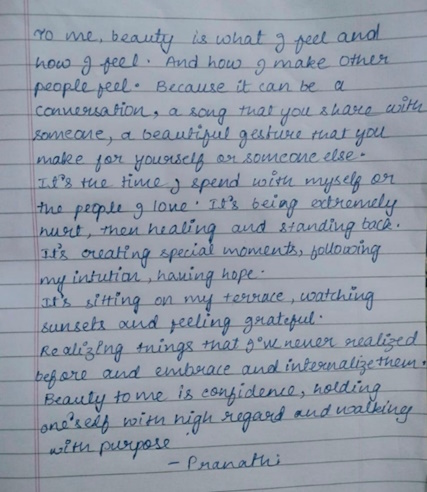 To me, beauty is what I feel and
how I feel. And how I make other
people feel. Because it can be a
conversation, a song that you share with
someone, a beautiful gesture that you
make for yourself or someone else.
It's the time I spend with myself or
the people I love. It's being extremely
hurt, then healing and standing back.
It's creating special moments, following
my intution, having hope.
It's sitting on my terrace, watching
sunsets and feeling grateful.
Realizing things that I've never realized
before and embrace and internalize them.
Beauty to me is confidence, holding
one'self with high regard and walking
with purpose
- Pranathi